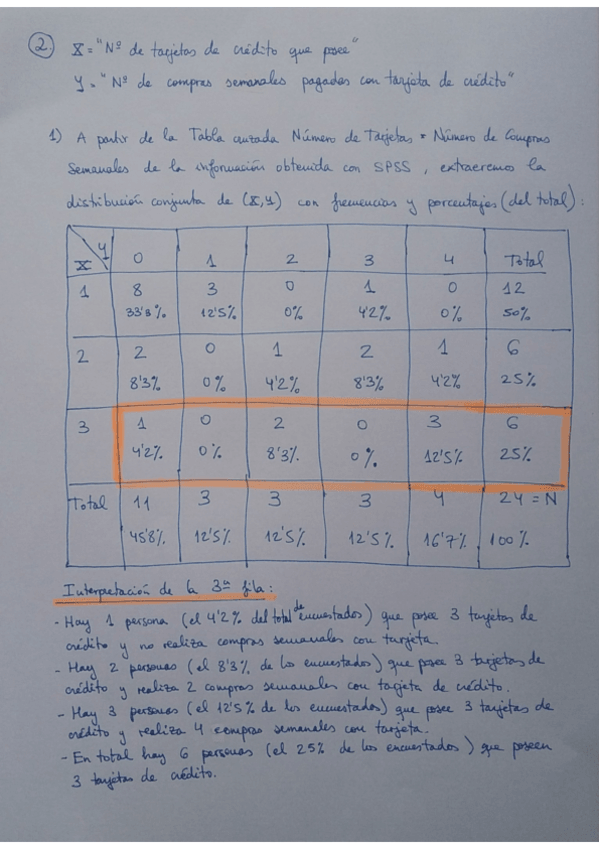 2. X = "Nº de tarjetas de crédito que posee"
Y = "Nº de compras semanales pagadas con tarjeta de crédito"
1) A partir de la Tabla cruzada Número de Tarjetas * Número de Compras
Semanales de la información obtenida con SPSS, extraeremos la
distribución conjunta de (X,Y) con frecuencias y porcentajes (del total):
X Y 0 1 2 3 4 Total
1 8 3 0 1 0 12
33'3% 12'5% 0% 4'2% 0% 50%
2 2 0 1 2 1 6
8'3% 0% 4'2% 8'3% 4'2% 25%
3 1 0 2 0 3 6
4'2% 0% 8'3% 0% 12'5% 25%
Total 11 3 3 3 4 24 = N
45'8% 12'5% 12'5% 12'5% 16'7% 100%
Interpretación de la 3ª fila:
- Hay 1 persona (el 4'2% del total de encuestados) que posee 3 tarjetas de
crédito y no realiza compras semanales con tarjeta.
- Hay 2 personas (el 8'3% de los encuestados) que posee 3 tarjetas de
crédito y realiza 2 compras semanales con tarjeta de crédito.
- Hay 3 personas (el 12'5% de los encuestados) que posee 3 tarjetas de
crédito y realiza 4 compras semanales con tarjeta.
- En total hay 6 personas (el 25% de los encuestados) que poseen
3 tarjetas de crédito.